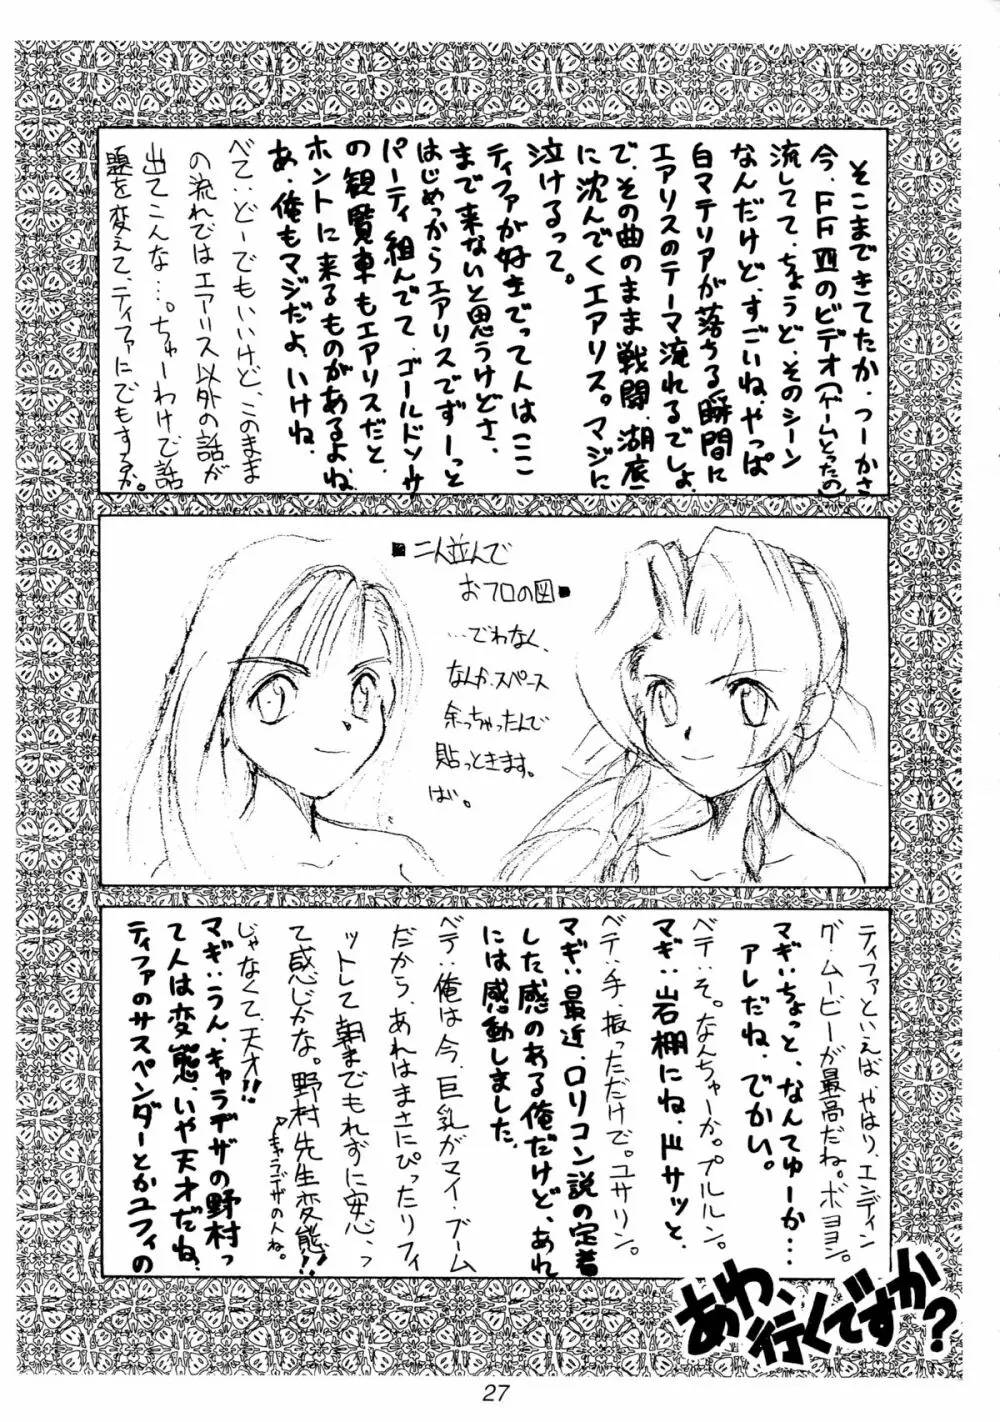 そこまできてたか。つーかさ
今、FFⅦのビデオ(ゲームとったの)
流してて、ちょうど、そのシーン
なんだけど、すごいね。やっぱ
白マテリアが落ちる瞬間に
エアリスのテーマ流れるでしょ
で、その曲のまま戦闘、湖底
に沈んでくエアリス。マジに
泣けるって。
ティファが好きでって人はここ
まで来ないと思うけどさ、
はじめっからエアリスでずーっと
パーティ組んでて、ゴールドソーサ
の観覧車もエアリスだと、
ホントに来るものがあるよね。
あ、俺もマジだよ、いけね。
ベて:どーでもいいけど、このまま
の流れではエアリス以外の話が
出てこんな…。ちゅーわけで話
題を変えて、ティファにでもするか。
■二人並んで
おフロの図■
…でわなく、
なんか、スペース
余っちゃったんで
貼っときます。
ば。
ティファといえば、やはり、エンディン
グ・ムービーが最高だね。ボヨヨン。
マギ:ちょっと、なんてゅーか…
アレだね、でかい。
ベテ:そ。なんちゃーか。プルルン。
マギ:岩棚にね、ドサッと
ベテ:手、振っただけで。ユサリン。
マギ:最近、ロリコン説の定着
した感のある俺だけど、あれ
には感動しました。
ベテ:俺は今、巨乳がマイ・ブーム
だから、あれはまさにぴったりフィ
ットして朝までもれずに安心、っ
て感じかな。野村先生変態!!
キャラデザの人ね。
じゃなくて、天才!!
マギ:うん、キャラデザの野村っ
て人は変態、いや天才だね、
ティファのサスペンダーとかユフィの
あわ、行くですか?
27